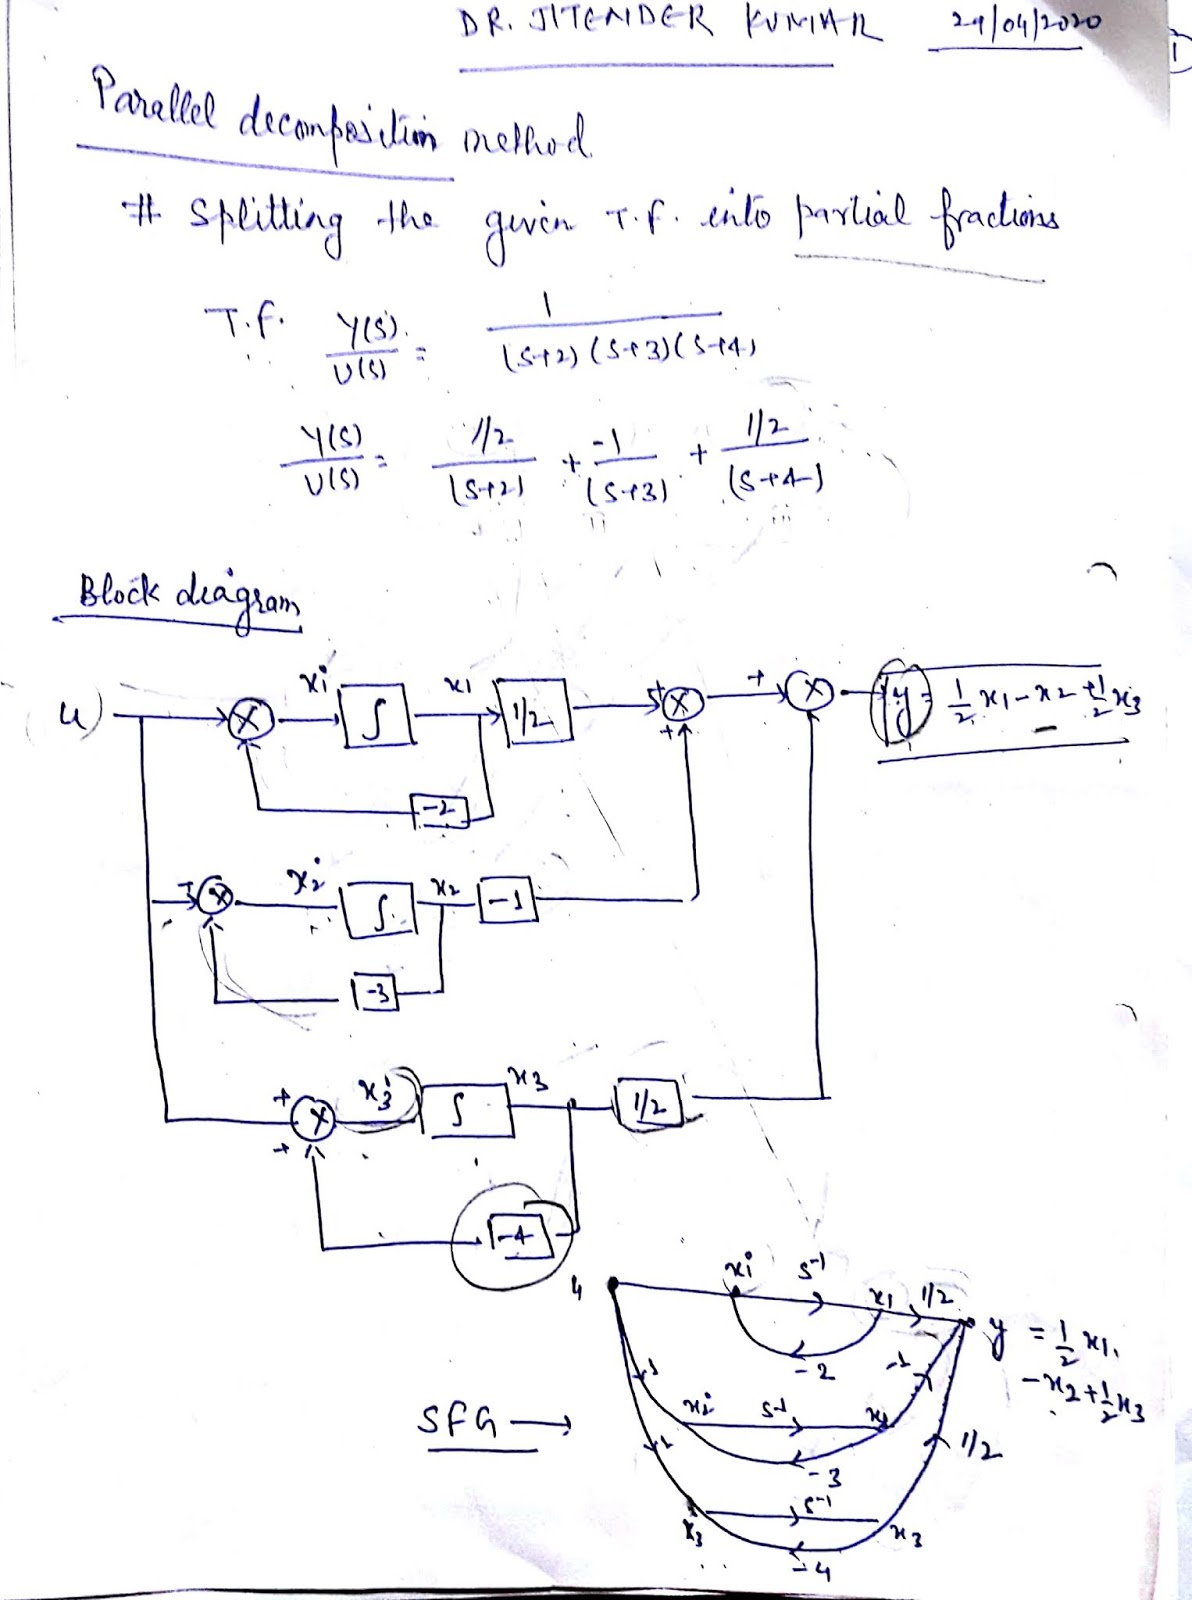 DR. JITENDER KUMAR 29/04/2020
1
Parallel decomposition method
# Splitting the given T.F. into partial fractions
T.F. Y(S)/U(S) = 1/(S+2)(S+3)(S+4)
Y(S)/U(S) = 1/2/(S+2) + -1/(S+3) + 1/2/(S+4)
i ii iii
Block diagram
u ẋ1 ∫ x1 1/2 + + + y = 1/2 x1 - x2 + 1/2 x3
-2
ẋ2 ∫ x2 -1
-3
+ ẋ3 ∫ x3 1/2
+
-4
u ẋ1 s⁻¹ x1 1/2 y = 1/2 x1
-2 -1 - x2 + 1/2 x3
1 ẋ2 s⁻¹ x2
SFG → 1 -3 1/2
ẋ3 s⁻¹ x3
-4